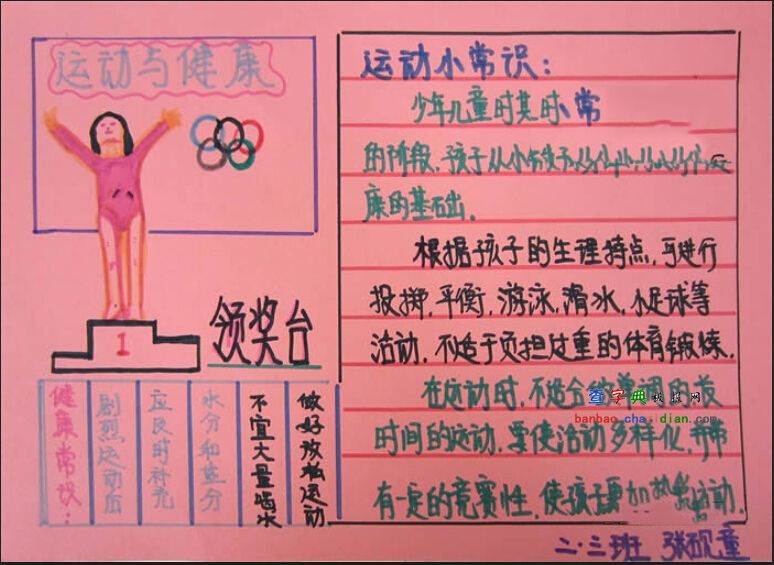 运动与健康
1
领奖台
健康常识：
剧烈运动后
应及时补充
水分和盐分
不宜大量喝水
做好放松运动
运动小常识：
少年儿童时其时 常
的阶段，孩子从小
康的基础。
根据孩子的生理特点，可进行
投掷，平衡，游泳，滑冰，小足球等
活动，不适于负担过重的体育锻炼。
在运动时，不适合 的长
时间的运动，要使活动多样化，并带
有一定的竞赛性，使孩子更加热爱运动。
查字典板报网
banbao.chazidian.com
二.三班 张砚童